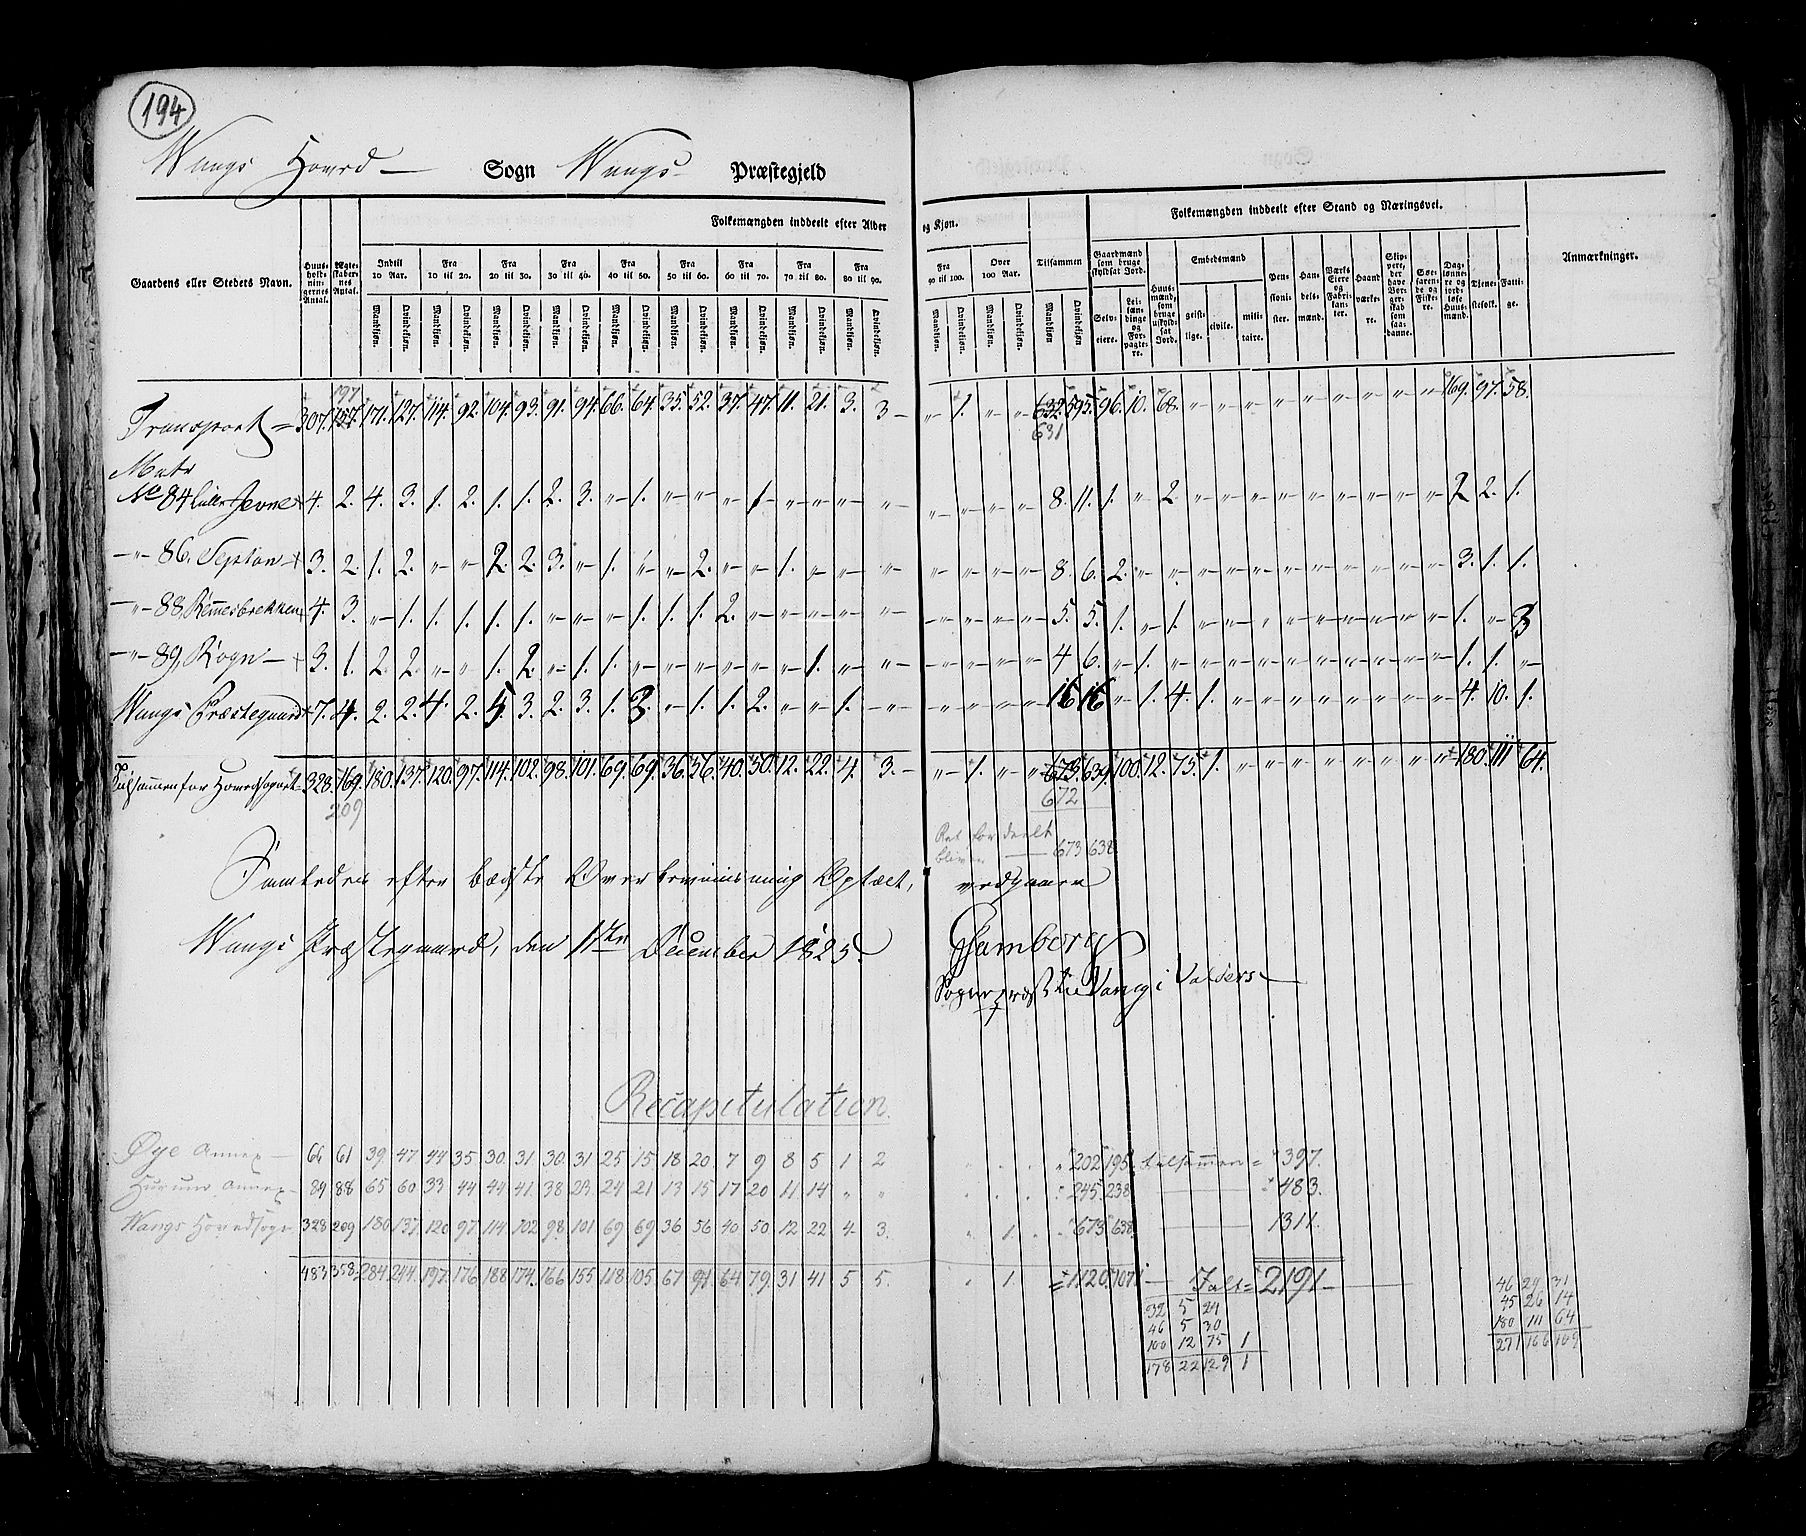 194
Wangs Hoved — Sogn Wangs Præstegjeld
Folkemængden inddeelt efter Alder og Kjøn. Tilsammen Folkemængden inddeelt efter Stand og Næringsvei.
Gaardens eller Stedets Navn. Huusholdningernes Antal. Ægteskabernes Antal. Indtil 10 Aar. Fra 10 til 20. Fra 20 til 30. Fra 30 til 40. Fra 40 til 50. Fra 50 til 60. Fra 60 til 70. Fra 70 til 80. Fra 80 til 90. Fra 90 til 100. Over 100 Aar. Gaardmænd som bruge skyldsat Jord. Huusmænd, som bruge uskyldsat Jord. Embedsmænd Pensionister. Handelsmænd. Værks Eiere og Fabrikanter. Haandværkere. Skippere, der have Borgerskab som saadanne. Søefarende og Fiskere. Daglønnere og jordløse Huusmænd. Tjenestefolk. Fattige. Anmærkninger.
Mandkiøn. Qvindekiøn. Selveiere. Leilændinge og Forpagtere. geistlige. civile. militaire.
197
Transport = 307. 157. 171. 127. 114. 92. 104. 93. 91. 94. 66. 64. 35. 52. 37. 47. 11. 21. 3. 3 — " 1. " " 632. 595. 96. 10. 68. " " " " " " " " " 169. 97. 58.
631
Matr
No 84 Lille Jevne 4. 2. 4. 3. 1. 2. 1. 1. 2. 3. " 1. " " " 1 " " " " " " " " 8. 11. 1. " 2 " " " " " " " " " 2 2. 1.
— " — 86. Septon 3. 2. 1. 2. " " 2. 2. 3. " 1. " " 2. " " 1. " " " " " " 8. 6. 2. " " " " " " " " " " " 3. 1. 1.
— " — 88. Remmesbrekken 4. 3. " 1. 1. 1. 1. 1. " " " 1. 1. 1. 2. " " " " " " " " " 5. 5. 1. " 1. " " " " " " " " " 1. " 3
— " — 89. Rogn — 3. 1. 2. 2. " " 1. 2. " 1. 1. " " " " " " 1. " " " " " " 4 6. " 1. " " " " " " " " " " 1. 1. "
Wangs Præstegaard 7. 4. 2. 2. 4. 2. 5. 3. 2. 3. 1. 3. " 1. 1. 2. " " 1. " " " " " 16 16 " 1. 4. 1. " " " " " " " " 4. 10. 1.
Tilsammen for Hovedsognet 328. 169. 180. 137. 120. 97. 114. 102. 98. 101. 69. 69. 36. 56. 40. 50. 12. 22. 4. 3. — " 1. " " 673. 639. 100. 12. 75. 1. " " " " " " " " 180. 111 64.
209 672
Ret fordeelt
bliver — 673 638
Saaledes efter bedste Overbeviisning Optaget, vedgaaer
Wangs Præstegaard, den 11te December 1825.
Sognepræst til Vang i Valders —
Recapitulation
Øye Annex — 66 61 39. 47 44 35 30. 31. 30. 31 25 15 18 20. 7 9 8 5 1 2 " . . " 202 195. tilsammen = 397.
Hurum Annex — 89 88 65 60 33 44 44 41. 38 23. 24 21 13 15 17 20 11 14 " " " . . . 245. 238 — 483.
Wangs Hovedsogn 328 209 180 137. 120 97 114. 102 98. 101 69 69 36 56 40 50 12 22 4. 3. " 1. . . 673 638. — 1311.
483 358. 284 244. 197. 176 188 174. 166 155 118 105 67 91 64. 79. 31 41 5 5. " 1. = 1120. 1071 — Ialt = 2191 —
32 5 24 46 29 31
46 5 30 45 26 14
100 12 75 1 180 111 64
178 22 129 1 271 166 109